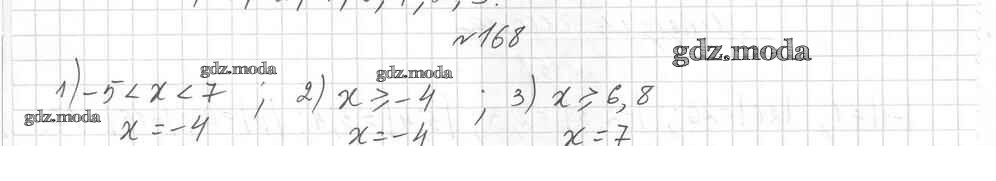 №168
gdz.moda
1) -5 < x < 7 ; 2) x ⩾ -4 ; 3) x ⩾ 6,8
gdz.moda
gdz.moda
gdz.moda
x = -4 x = -4 x = 7